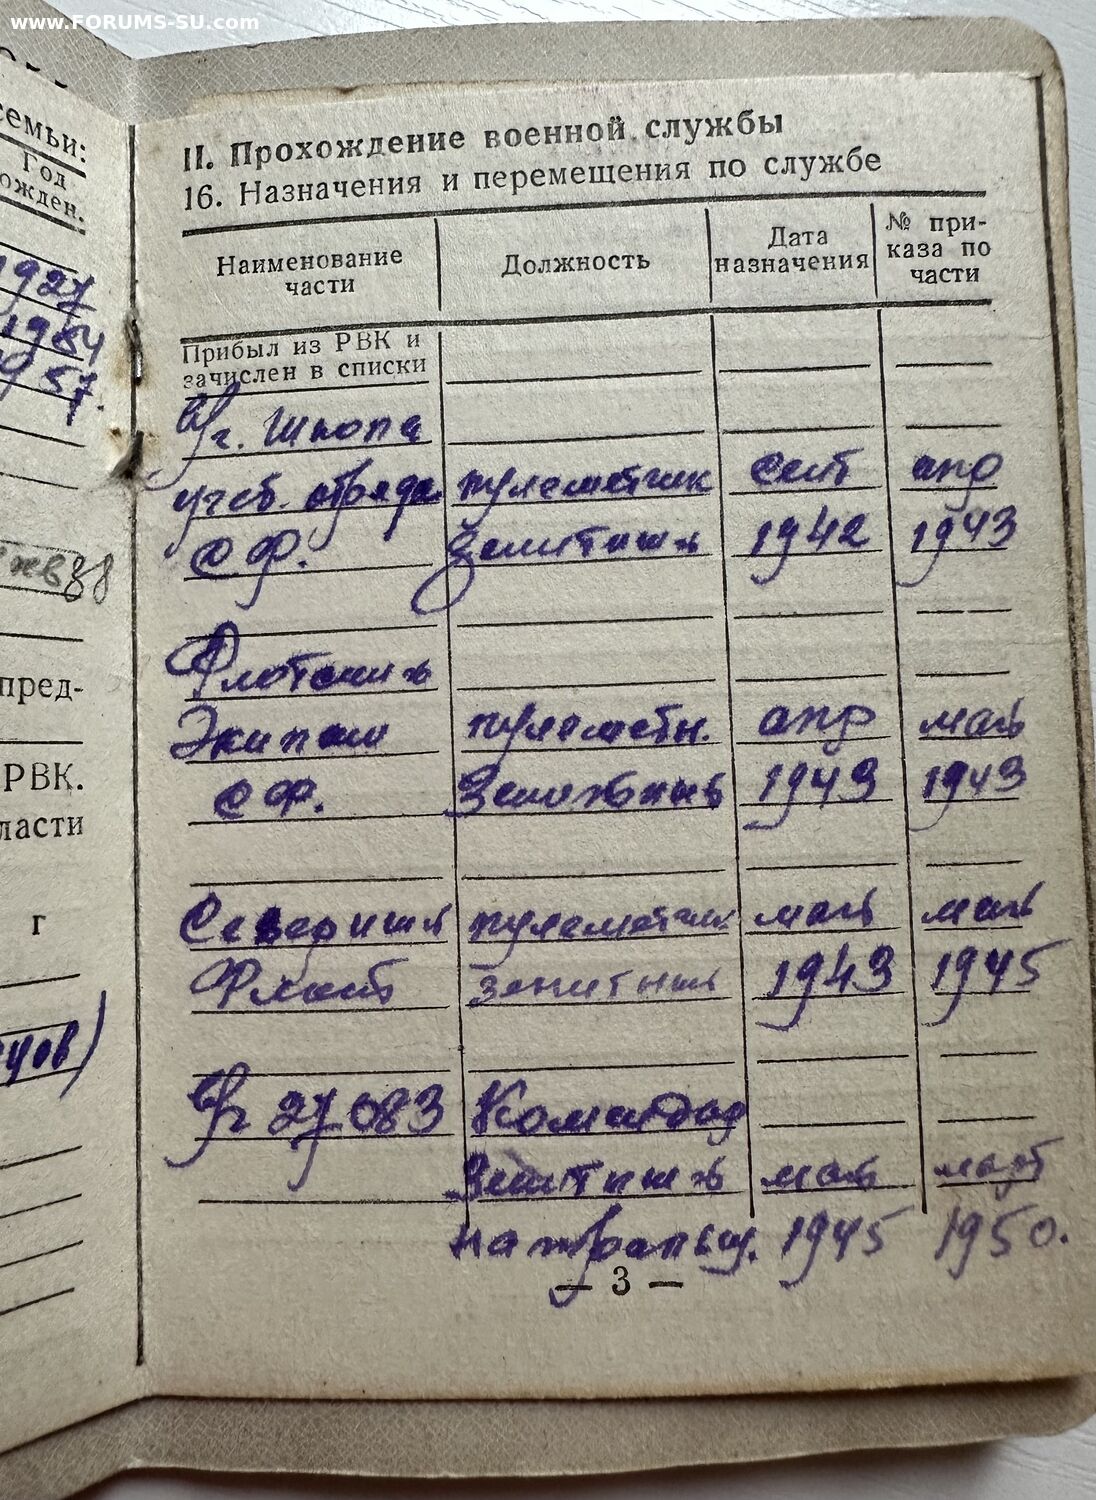 www.FORUMS-SU.com
семьи:
Год
ожден.
1927
1954
57.
пред-
РВК.
ласти
г
II. Прохождение военной службы
16. Назначения и перемещения по службе
Наименование части
Должность
Дата назначения
№ приказа по части
Прибыл из РВК и
зачислен в списки
в/г. Школа
учеб. отряда пулеметчик сент апр
СФ. Зенитчик 1942 1943
Флотский
Экипаж пулеметч. апр май
СФ. Зенитный 1943 1943
Северный пулеметчик май май
Флот зенитный 1943 1945
в/ч 27083 Командор
Зенитный май март
1945 1950.
— 3 —